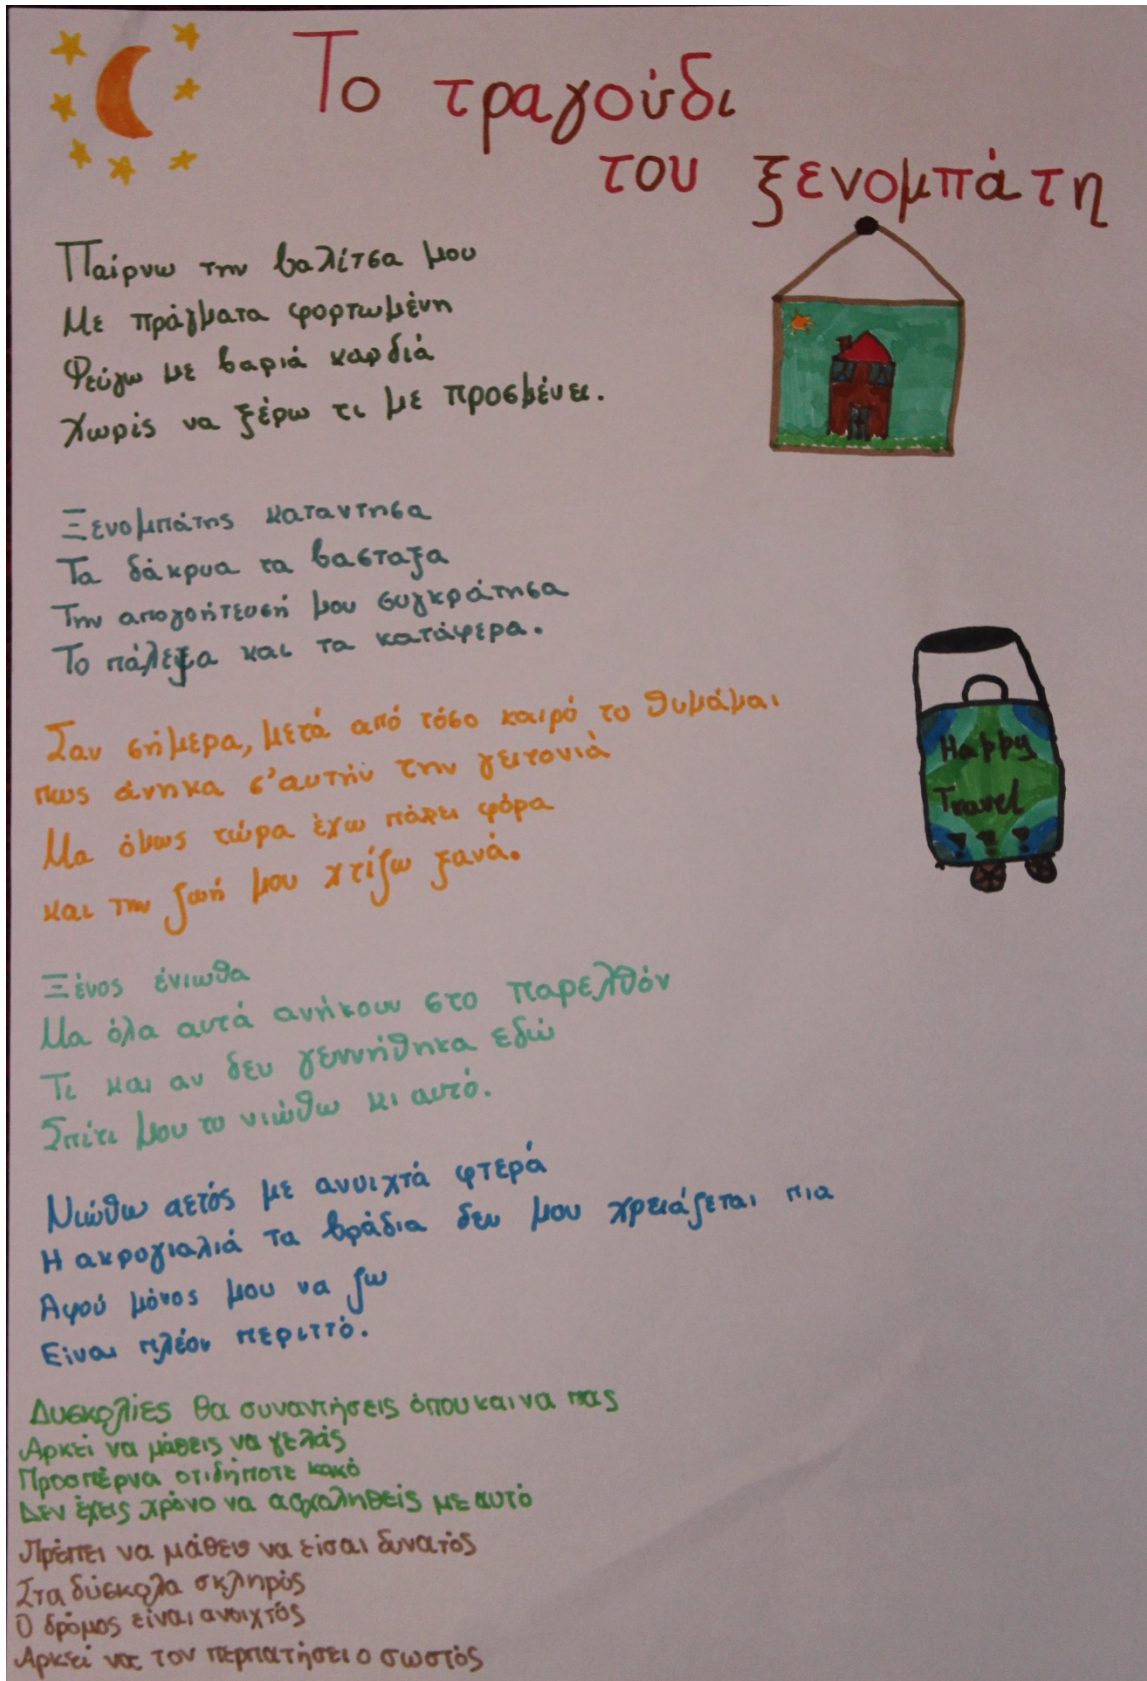 Το τραγούδι
του ξενομπάτη
Παίρνω την βαλίτσα μου
Με πράγματα φορτωμένη
Φεύγω με βαριά καρδιά
Χωρίς να ξέρω τι με προσμένει.
Ξενομπάτης καταντησα
Τα δάκρυα τα βασταξα
Την απογοήτευσή μου συγκράτησα
Το πάλεψα και τα κατάφερα.
Σαν σήμερα, μετά από τόσο καιρό το θυμάμαι
πως άνηκα σ'αυτήν την γειτονιά
Μα όμως τώρα έχω πάρει φόρα
και την ζωή μου χτίζω ξανά.
Ξένος ένιωθα
Μα όλα αυτά ανήκουν στο παρελθόν
Τι και αν δεν γεννήθηκα εδώ
Σπίτι μου το νιώθω κι αυτό.
Νιώθω αετός με ανοιχτά φτερά
Η ακρογιαλιά τα βράδια δεν μου χρειάζεται πια
Αφού μόνος μου να ζω
Είναι πλέον περιττό.
Δυσκολίες θα συναντήσεις όπου και να πας
Αρκεί να μάθεις να γελάς
Προσπέρνα οτιδήποτε κακό
Δεν έχεις χρόνο να ασχοληθείς με αυτό
Πρέπει να μάθεις να είσαι δυνατός
Στα δύσκολα σκληρός
Ο δρόμος είναι ανοιχτός
Αρκεί να τον περπατήσει ο σωστός
Happy
Travel